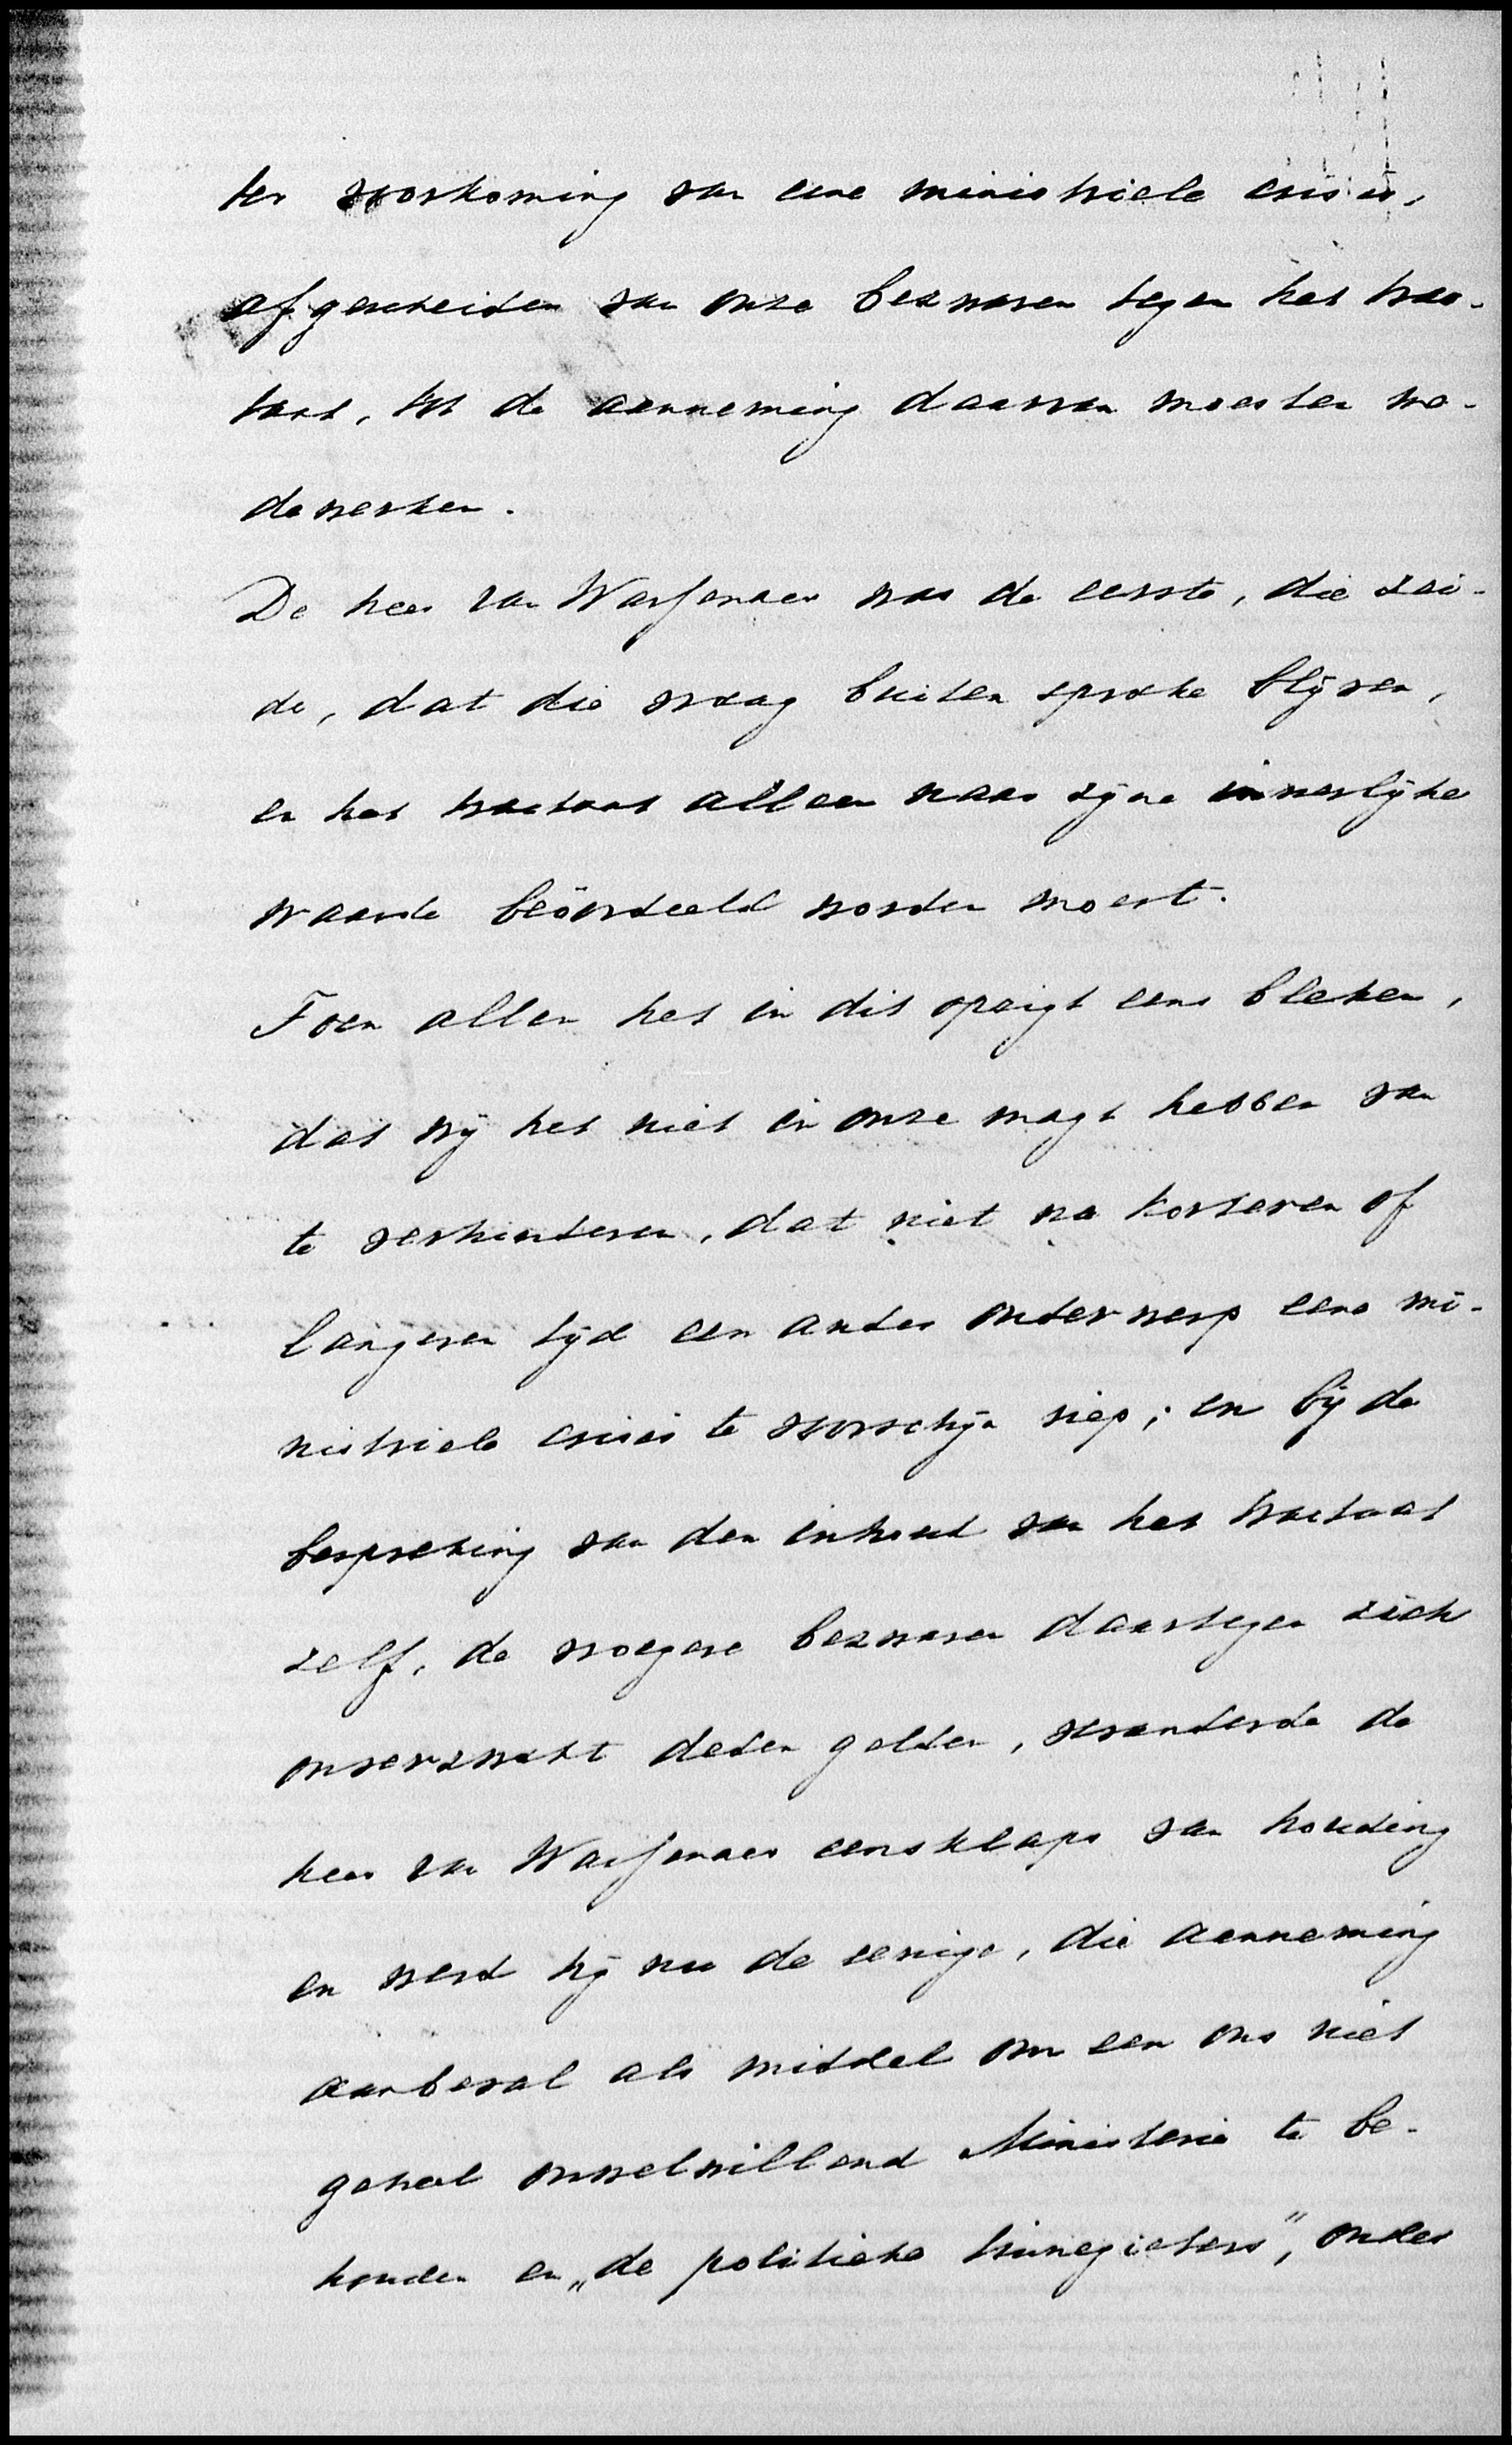 ter voorkoming van eene ministriele crisis,
afgescheiden van onze bezwaren tegen het trac-
taat, tot de aanneming daarvan moesten me-
dewerken.
De heer van Wassenaer was de eerste, die zei-
de, dat die vraag buiten sprake blijven,
en het tractaat alleen naar zijne innerlijke
waarde beöordeeld worden moest.
Toen allen het in dit opzigt eens bleken,
dat wij het niet in onze magt hebben van
te verhinderen, dat niet na korteren of
langeren tijd een ander onderwerp eene mi-
nistriele crisis te voorschijn riep; en bij de
bespreking van den inhoud van het tractaat
zelf, de vroegere bezwaren daartegen zich
onverzwakt deden gelden, veranderde de
heer van Wassenaer eensklaps van houding
en werd hij nu de eenige, die aanneming
aanbeval als middel om een ons niet
geheel onwelwillend Ministerie te be-
houden en „de politieke tinnegieters”, onder